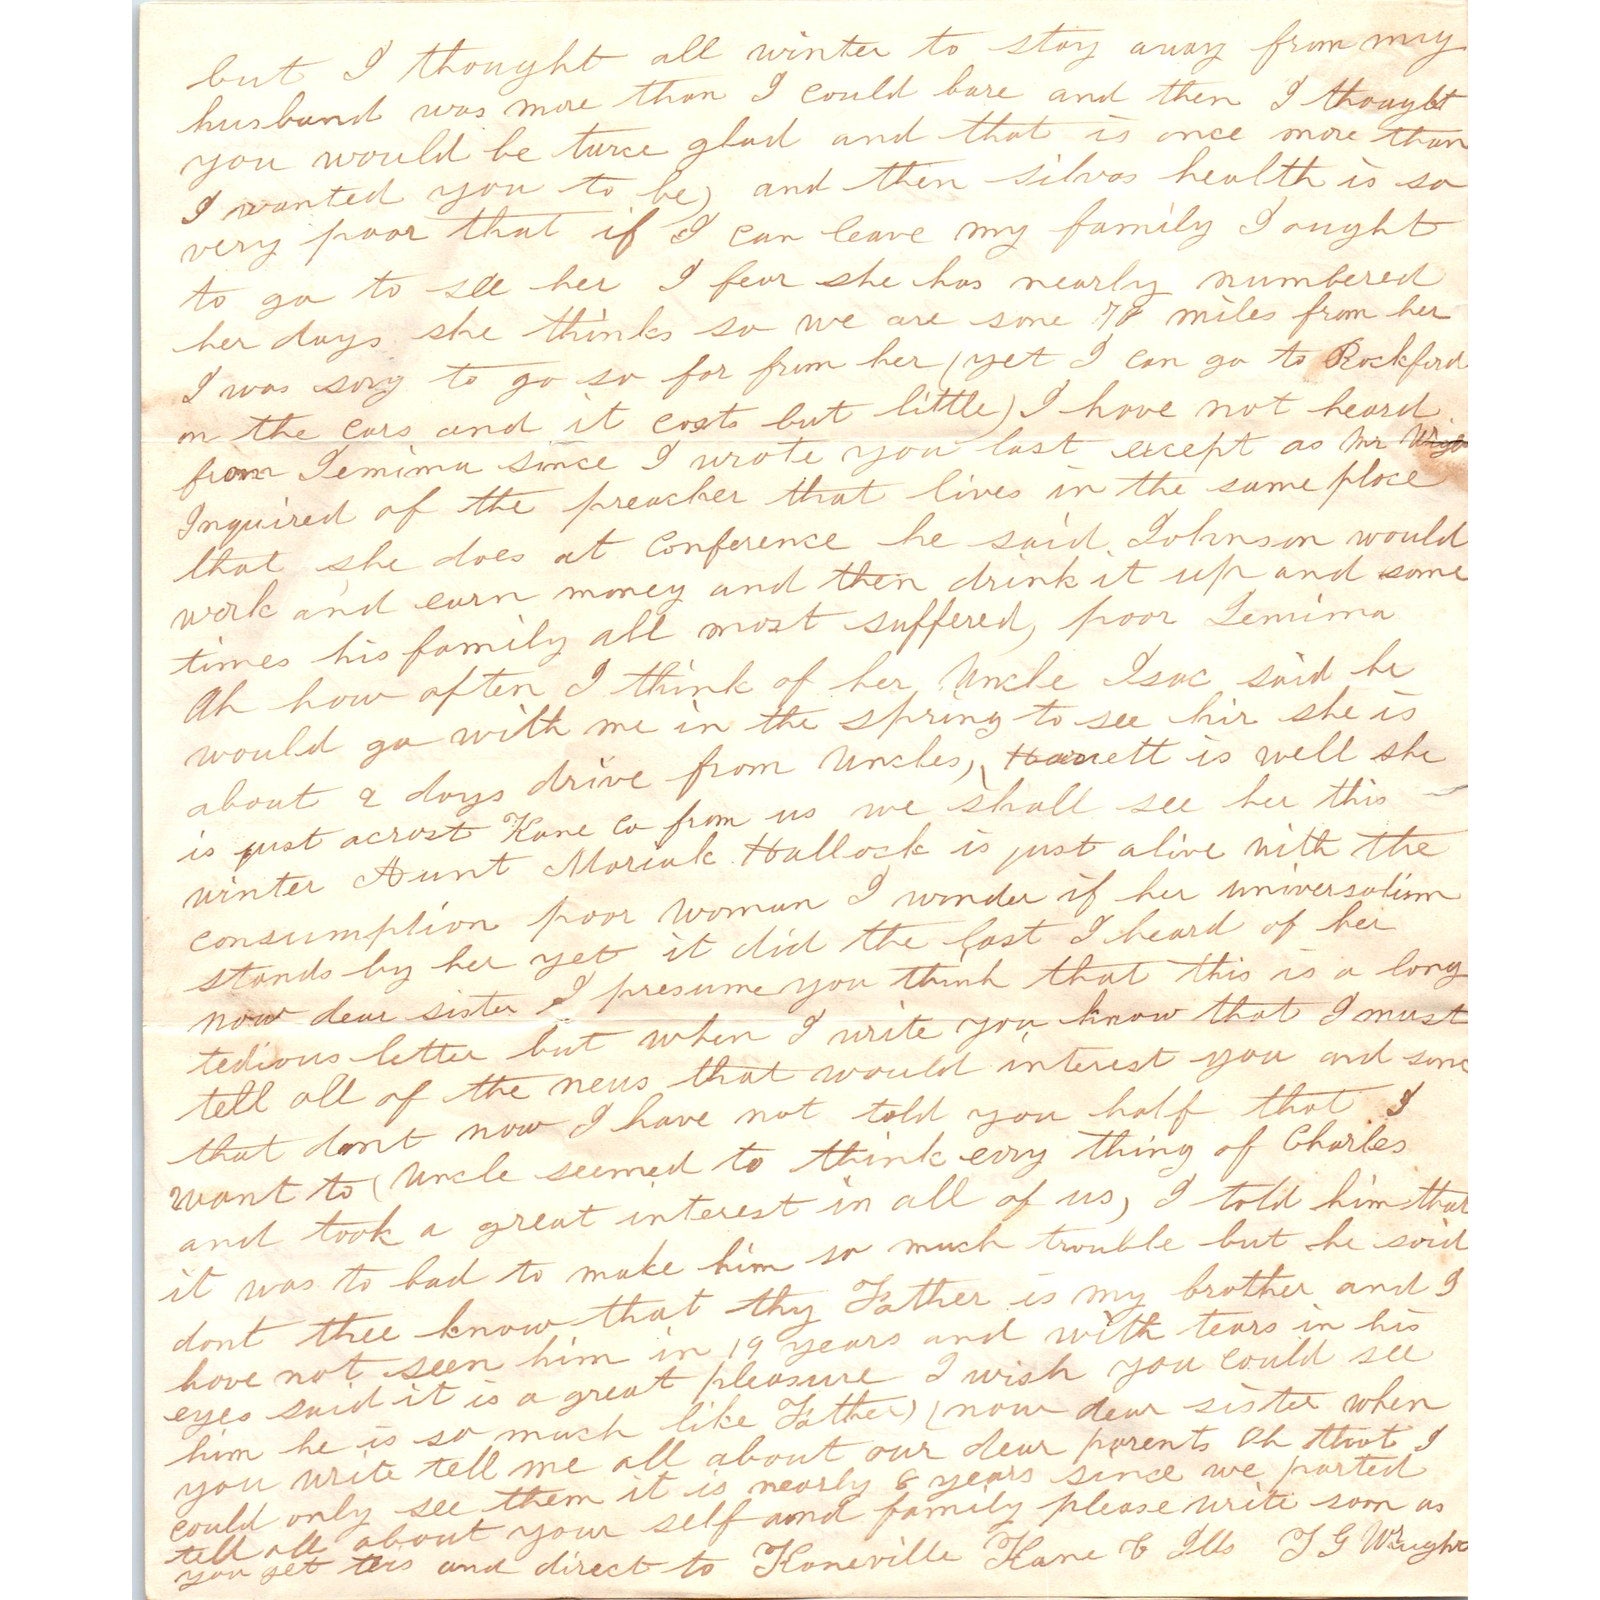 but I thought all winter to stay away from my
husband was more than I could bare and then I thought
you would be twice glad and that is once more than
I wanted you to be) and then silvas health is so
very poor that if I can leave my family I ought
to go to see her I fear she has nearly numbered
her days she thinks so we are some 78 miles from her
I was sory to go so far from her (yet I can go to Rockford
on the cars and it costs but little) I have not heard
from Jemima since I wrote you last except as Mr
Inquired of the preacher that lives in the same place
that she does at Conference he said Johnson would
work and earn money and then drink it up and some
times his family all most suffered, poor Jemima
Ah how often I think of her Uncle Isac said he
would go with me in the spring to see hir she is
about 2 days drive from Uncles, is well she
is just acrost Kane Co from us we shall see her this
winter Aunt Moriah Hallock is just alive with the
consumption poor woman I wonder if her universalism
stands by her yet it did the last I heard of her
now dear sister I presume you think that this is a long
tedious letter but when I write you know that I must
tell all of the news that would interest you and some
that dont now I have not told you half that I
want to (Uncle seemed to think evry thing of Charles
and took a great interest in all of us, I told him that
it was to bad to make him so much trouble but he said
dont thee know that thy Father is my brother and I
have not seen him in 19 years and with tears in his
eyes said it is a great pleasure I wish you could see
him he is so much like Father) (now dear sister when
you write tell me all about our dear parents Oh that I
could only see them it is nearly 8 years since we parted
tell all about your self and family please write soon as
you get this and direct to Kaneville Kane C Ills J G Wright